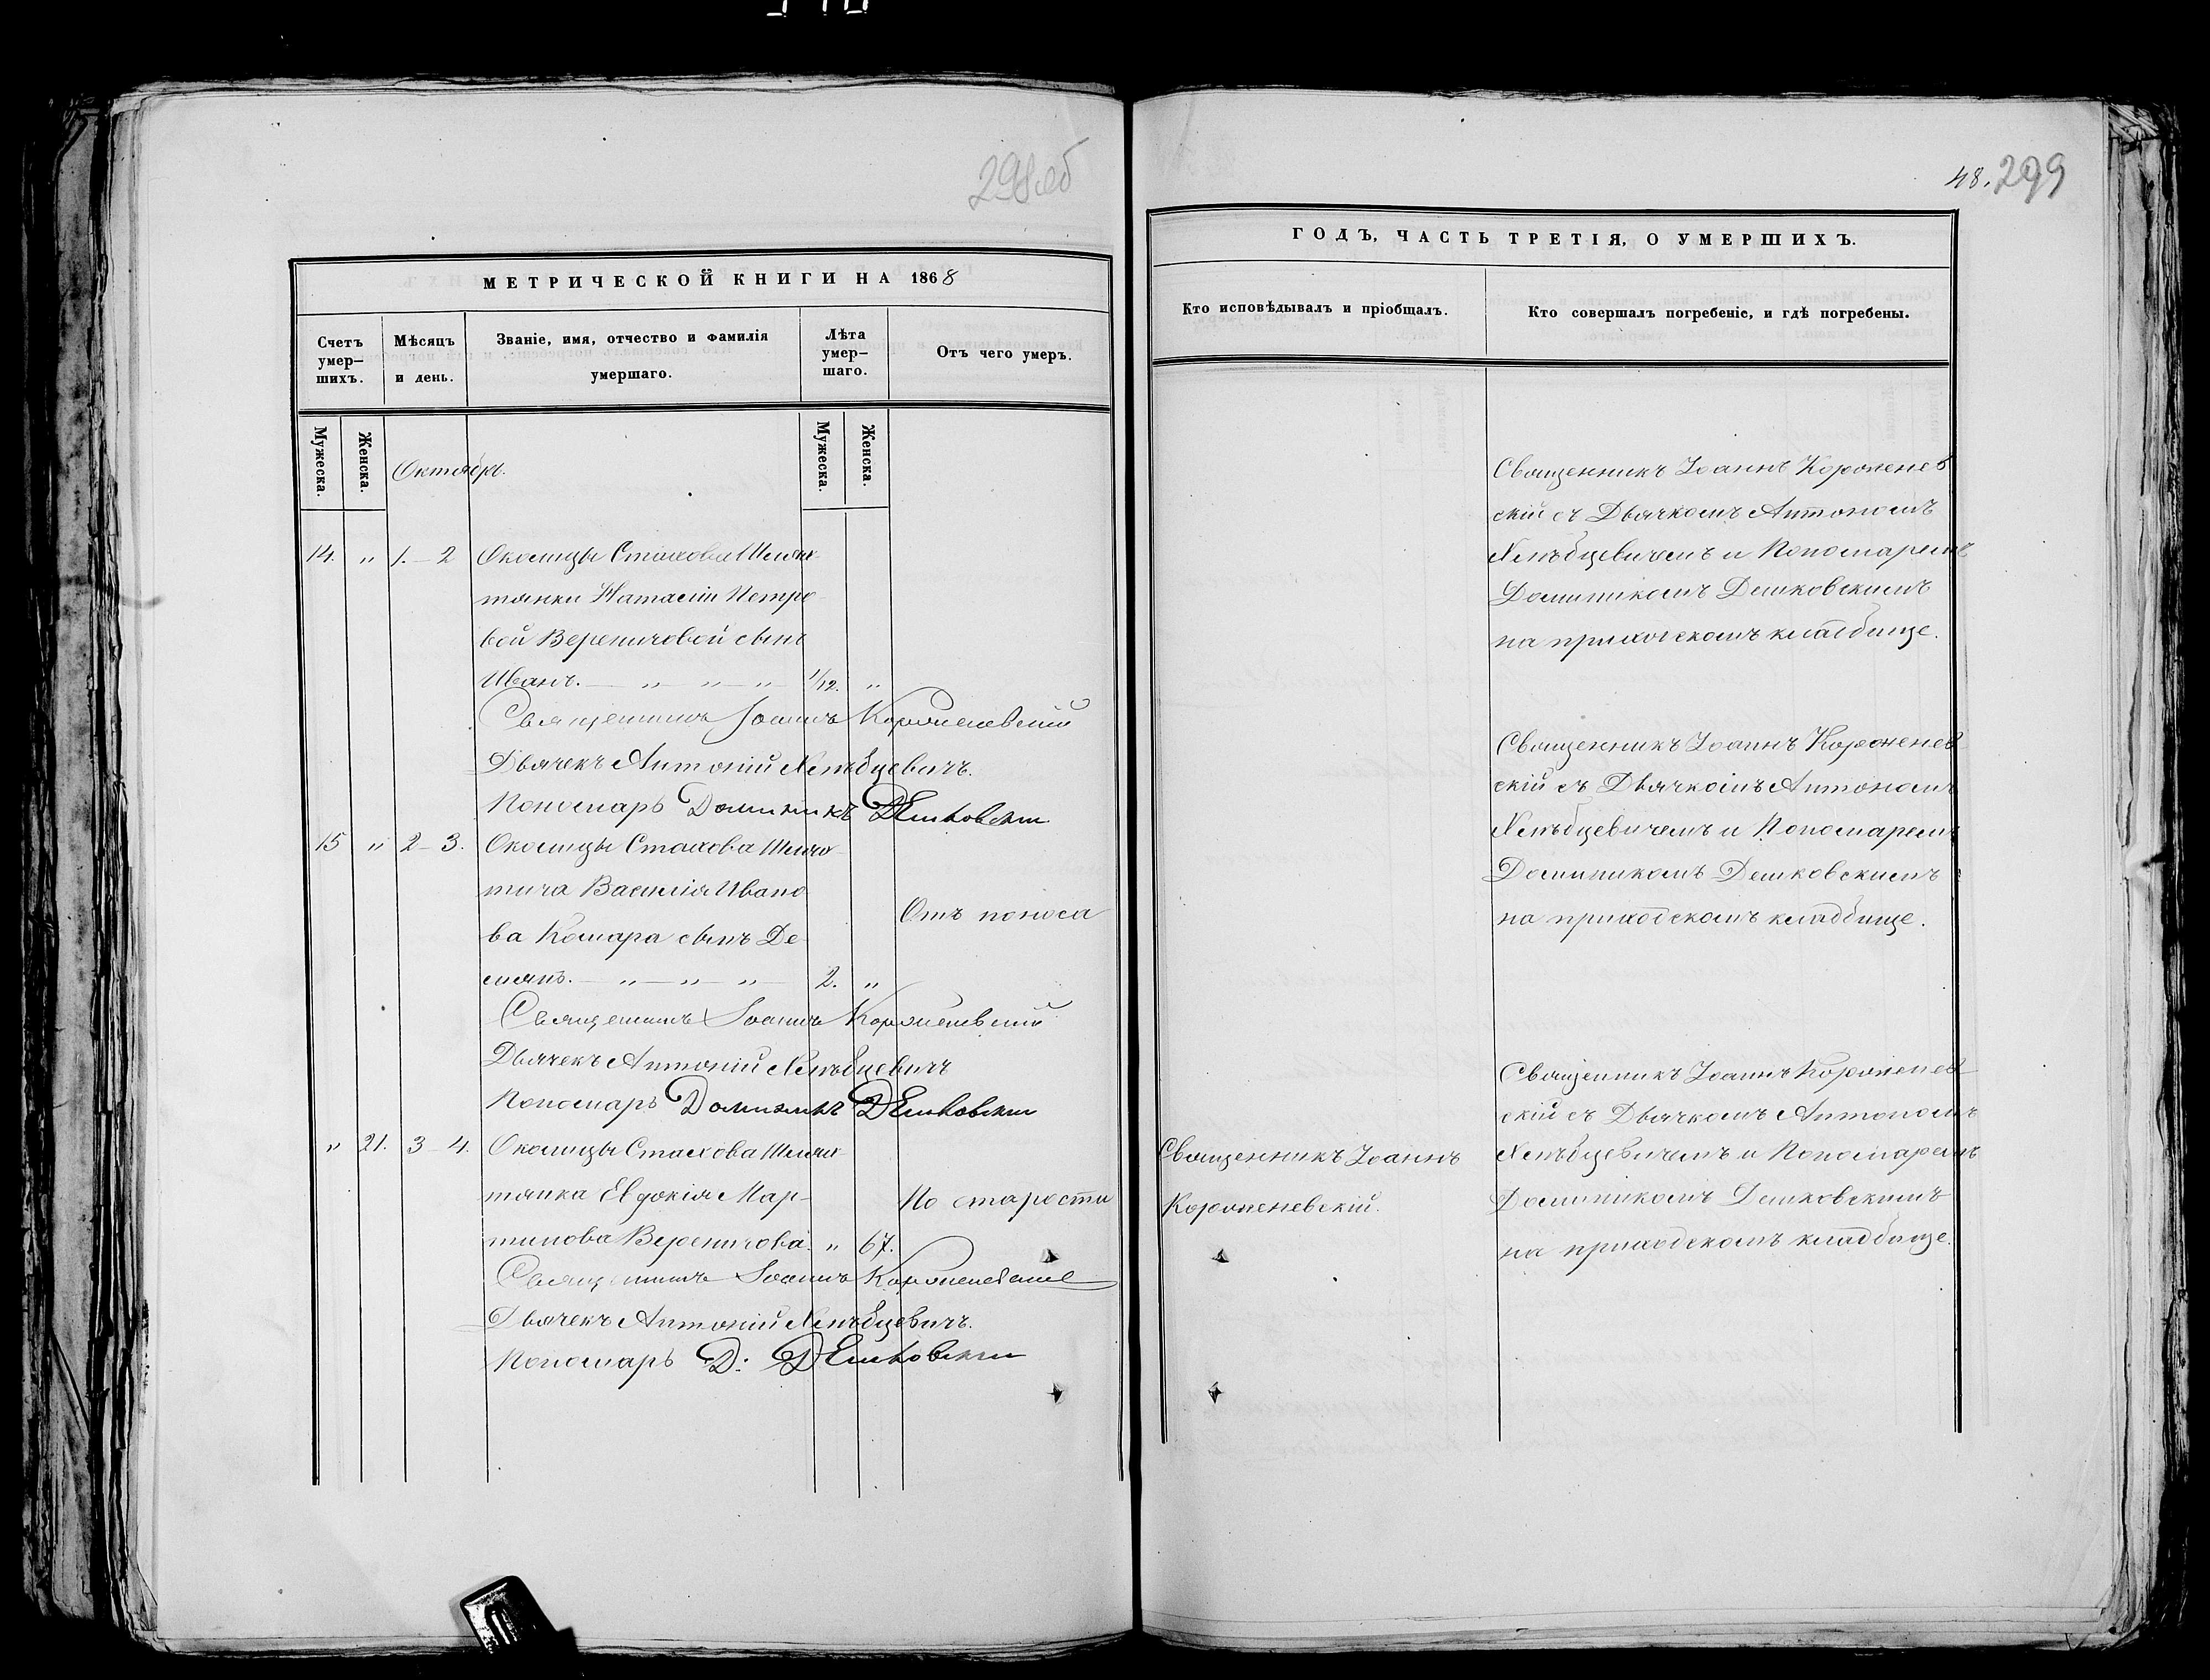 298об
МЕТРИЧЕСКОЙ КНИГИ НА 1868
Счетъ умер—шихъ.
Мѣсяцъ и день.
Званіе, имя, отчество и фамилія умершаго.
Лѣта умер—шаго.
Отъ чего умеръ.
Мужеска.
Женска.
Октябрь.
Мужеска.
Женска.
14. " 1.–2 Околицы Стахова Шлях-
тянки Натасіи Петро
вой Вереничовой сынъ
Иванъ. — " — " — " 1/12. "
Священникъ Іоаннъ Короженевскій
Дьячекъ Антоній Хлѣбцевичъ.
Пономарь Доминикъ Дешковскій
15 " 2–3. Околицы Стахова Шлях-
тича Василія Ивано
ва Комара сынъ Де-
міянъ. — " — " — " — 2. "
Отъ поноса
Священникъ Іоаннъ Короженевскій
Дьячекъ Антоній Хлѣбцевичъ
Пономарь Доминикъ Дешковскій
" 21. 3–4. Околицы Стахова Шлях-
тянка Евдокія Мар-
тинова Вереничова. " 67.
По старости
Священникъ Іоаннъ Короженевскій
Дьячекъ Антоній Хлѣбцевичъ.
Пономарь Д: Дешковскій
48. 299
ГОДЪ, ЧАСТЬ ТРЕТІЯ, О УМЕРШИХЪ.
Кто исповѣдывалъ и пріобщалъ.
Кто совершалъ погребеніе, и гдѣ погребены.
Священникъ Іоаннъ Короженев
скій съ Дьячкомъ Антономъ
Хлѣбцевичемъ и Пономаремъ
Доминикомъ Дешковскимъ
на приходскомъ кладбище.
Священникъ Іоаннъ Короженев-
скій съ Дьячкомъ Антономъ
Хлѣбцевичемъ и Пономаремъ
Доминикомъ Дешковскимъ
на приходскомъ кладбище.
Священникъ Іоаннъ
Короженевскій.
Священникъ Іоаннъ Короженев-
скій съ Дьячкомъ Антономъ
Хлѣбцевичемъ и Пономаремъ
Доминикомъ Дешковскимъ
на приходскомъ кладбище.